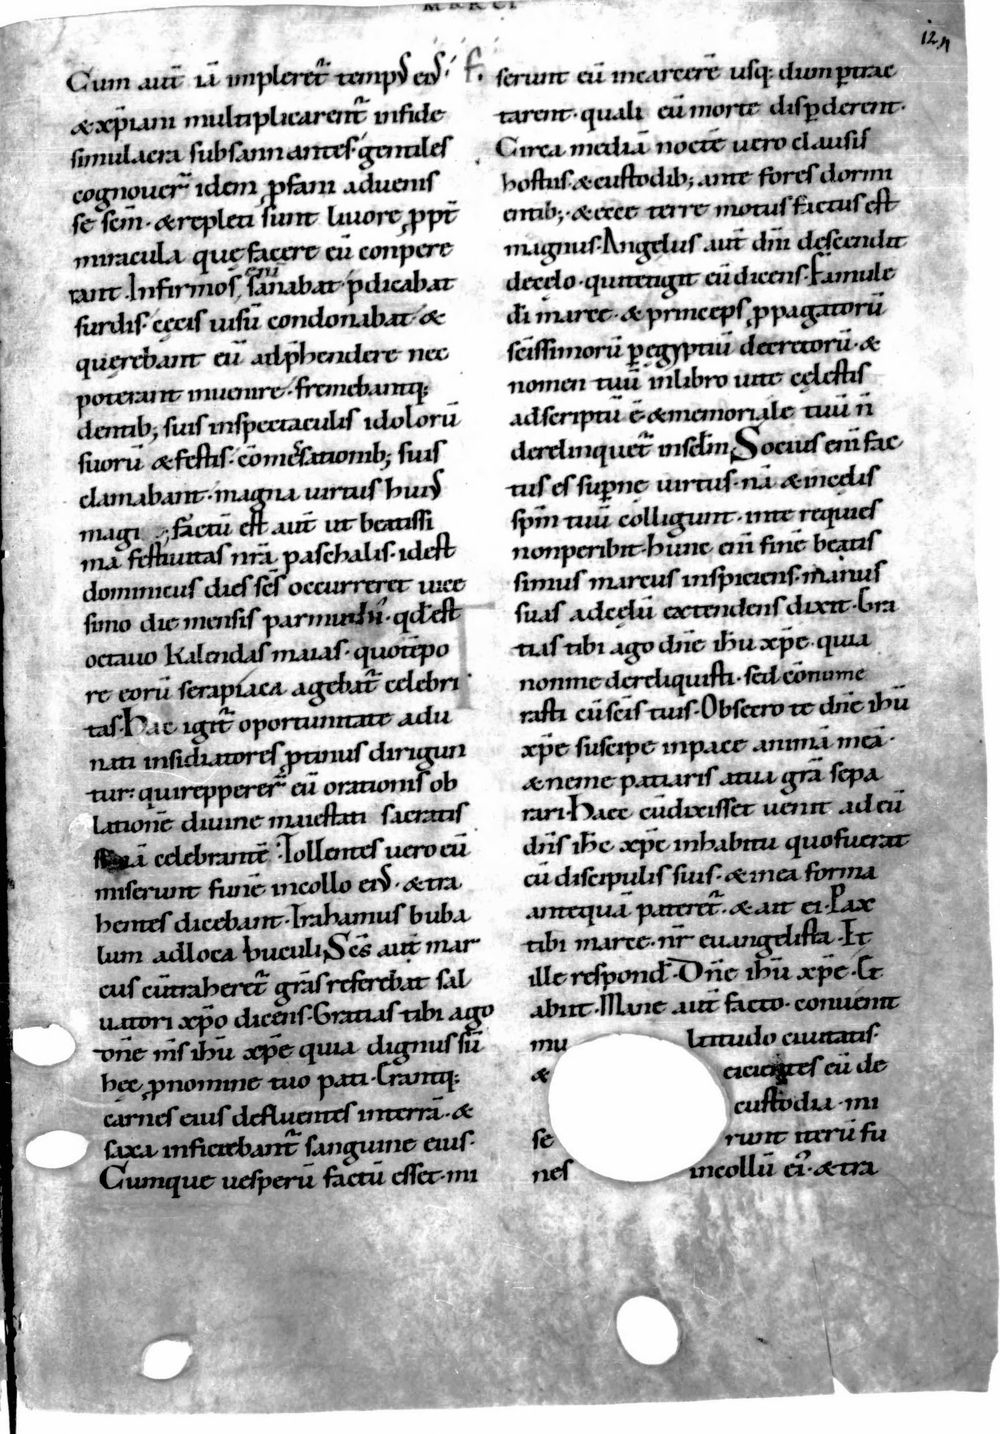 MARCI
124
Cum aut̄ iā impleret᷑ tempꝰ eiꝰ
& xp̄iani multiplicarent᷑ infide
simulacra subsannantes· gentiles
cognouer̄ idem ꝓfani aduenis
se sem̄· & repleti sunt liuore ꝓpt̄
miracula quę facere eū conpere
rant· Infirmos eni sanabat· p̄dicabat
surdis· cęcis uisū condonabat· &
querebant eū adp̄hendere nec
poterant inuenire· fremebantq;
dentib; suis inspectaculis idolorū
suorū & festis· cōmesationib; suis
clamabant· magna uirtus huiꝰ
magi ; factū est aut̄ ut beatissi
ma festiuitas nr̄a paschalis· idest
dominicus dies sc̄s occurreret uice
simo die mensis parmuthi· qđest
octauo kalendas maias· quotēpo
re eorū serapiaca agebat᷑ celebri
tas· Hac igit᷑ oportunitate adu
nati insidiatores ꝓtinus dirigun
tur· qui reppererr̄ eū orationis ob
lationē diuine maiestati sacratis
celebrantē· Tollentes uero eū
miserunt funē incollo eiꝰ· & tra
hentes dicebant· Trahamus buba
lum adloca buculi; Sc̄s aut̄ mar
cus cūtraheret᷑ grās referebat sal
uatori xp̄o dicens· Gratias tibi ago
dn̄e m̄s ihū xp̄e quia dignus sū
hęc ꝓnomine tuo pati· Erantq;
carnes eius defluentes interrā· &
saxa inficiebant᷑ sanguine eius·
Cumque uesperū factū esset· mi
serunt eū incarcerē usq; dum ꝑtrac
tarent· quali eū morte disꝑderent·
Circa mediā noctē uero clausis
hostiis· & custodib; ante fores dormi
entib;· & ecce terre motus factus est
magnus· Angelus aut̄ dn̄i descendit
decęlo· qui tetigit eū dicens· Famule
dī marce· & princeps ꝓpagatorū
sc̄issimorū ꝑ egyptiū decretorū· &
nomen tuū inlibro uite cęlestis
adscriptū ē· & memoriale tuū n̄
derelinquet᷑ insclm̄; Socius eni fac
tus es suꝑne uirtus· nā & incęlis
sp̄m tuū colligunt· inte requies
nonperibit· hunc eni finē beatis
simus marcus inspiciens· manus
suas adcęlū extendens dixit· Gra
tias tibi ago dn̄e ihū xp̄e· quia
nonme dereliquisti· sed cōnume
rasti cū sc̄is tuis· Obsecro te dn̄e ihū
xp̄e suscipe inpace animā meā·
& neme patiaris atua grā sepa
rari· Haec cūdixisset uenit adeū
dn̄s ihc̄ xp̄c inhabitu quofuerat
cū discipulis suis· & inea forma
antequā pateret᷑· & ait ei· Pax
tibi marce· nr̄ euangelista· Et
ille respond̄· Dn̄e ihū xp̄e· Et
abiit· Mane aut̄ facto· conuenit
mu ltitudo ciuitatis·
& eicientes eū de
custodia· mi
se runt iterū fu
nes incollū eiꝰ· & tra